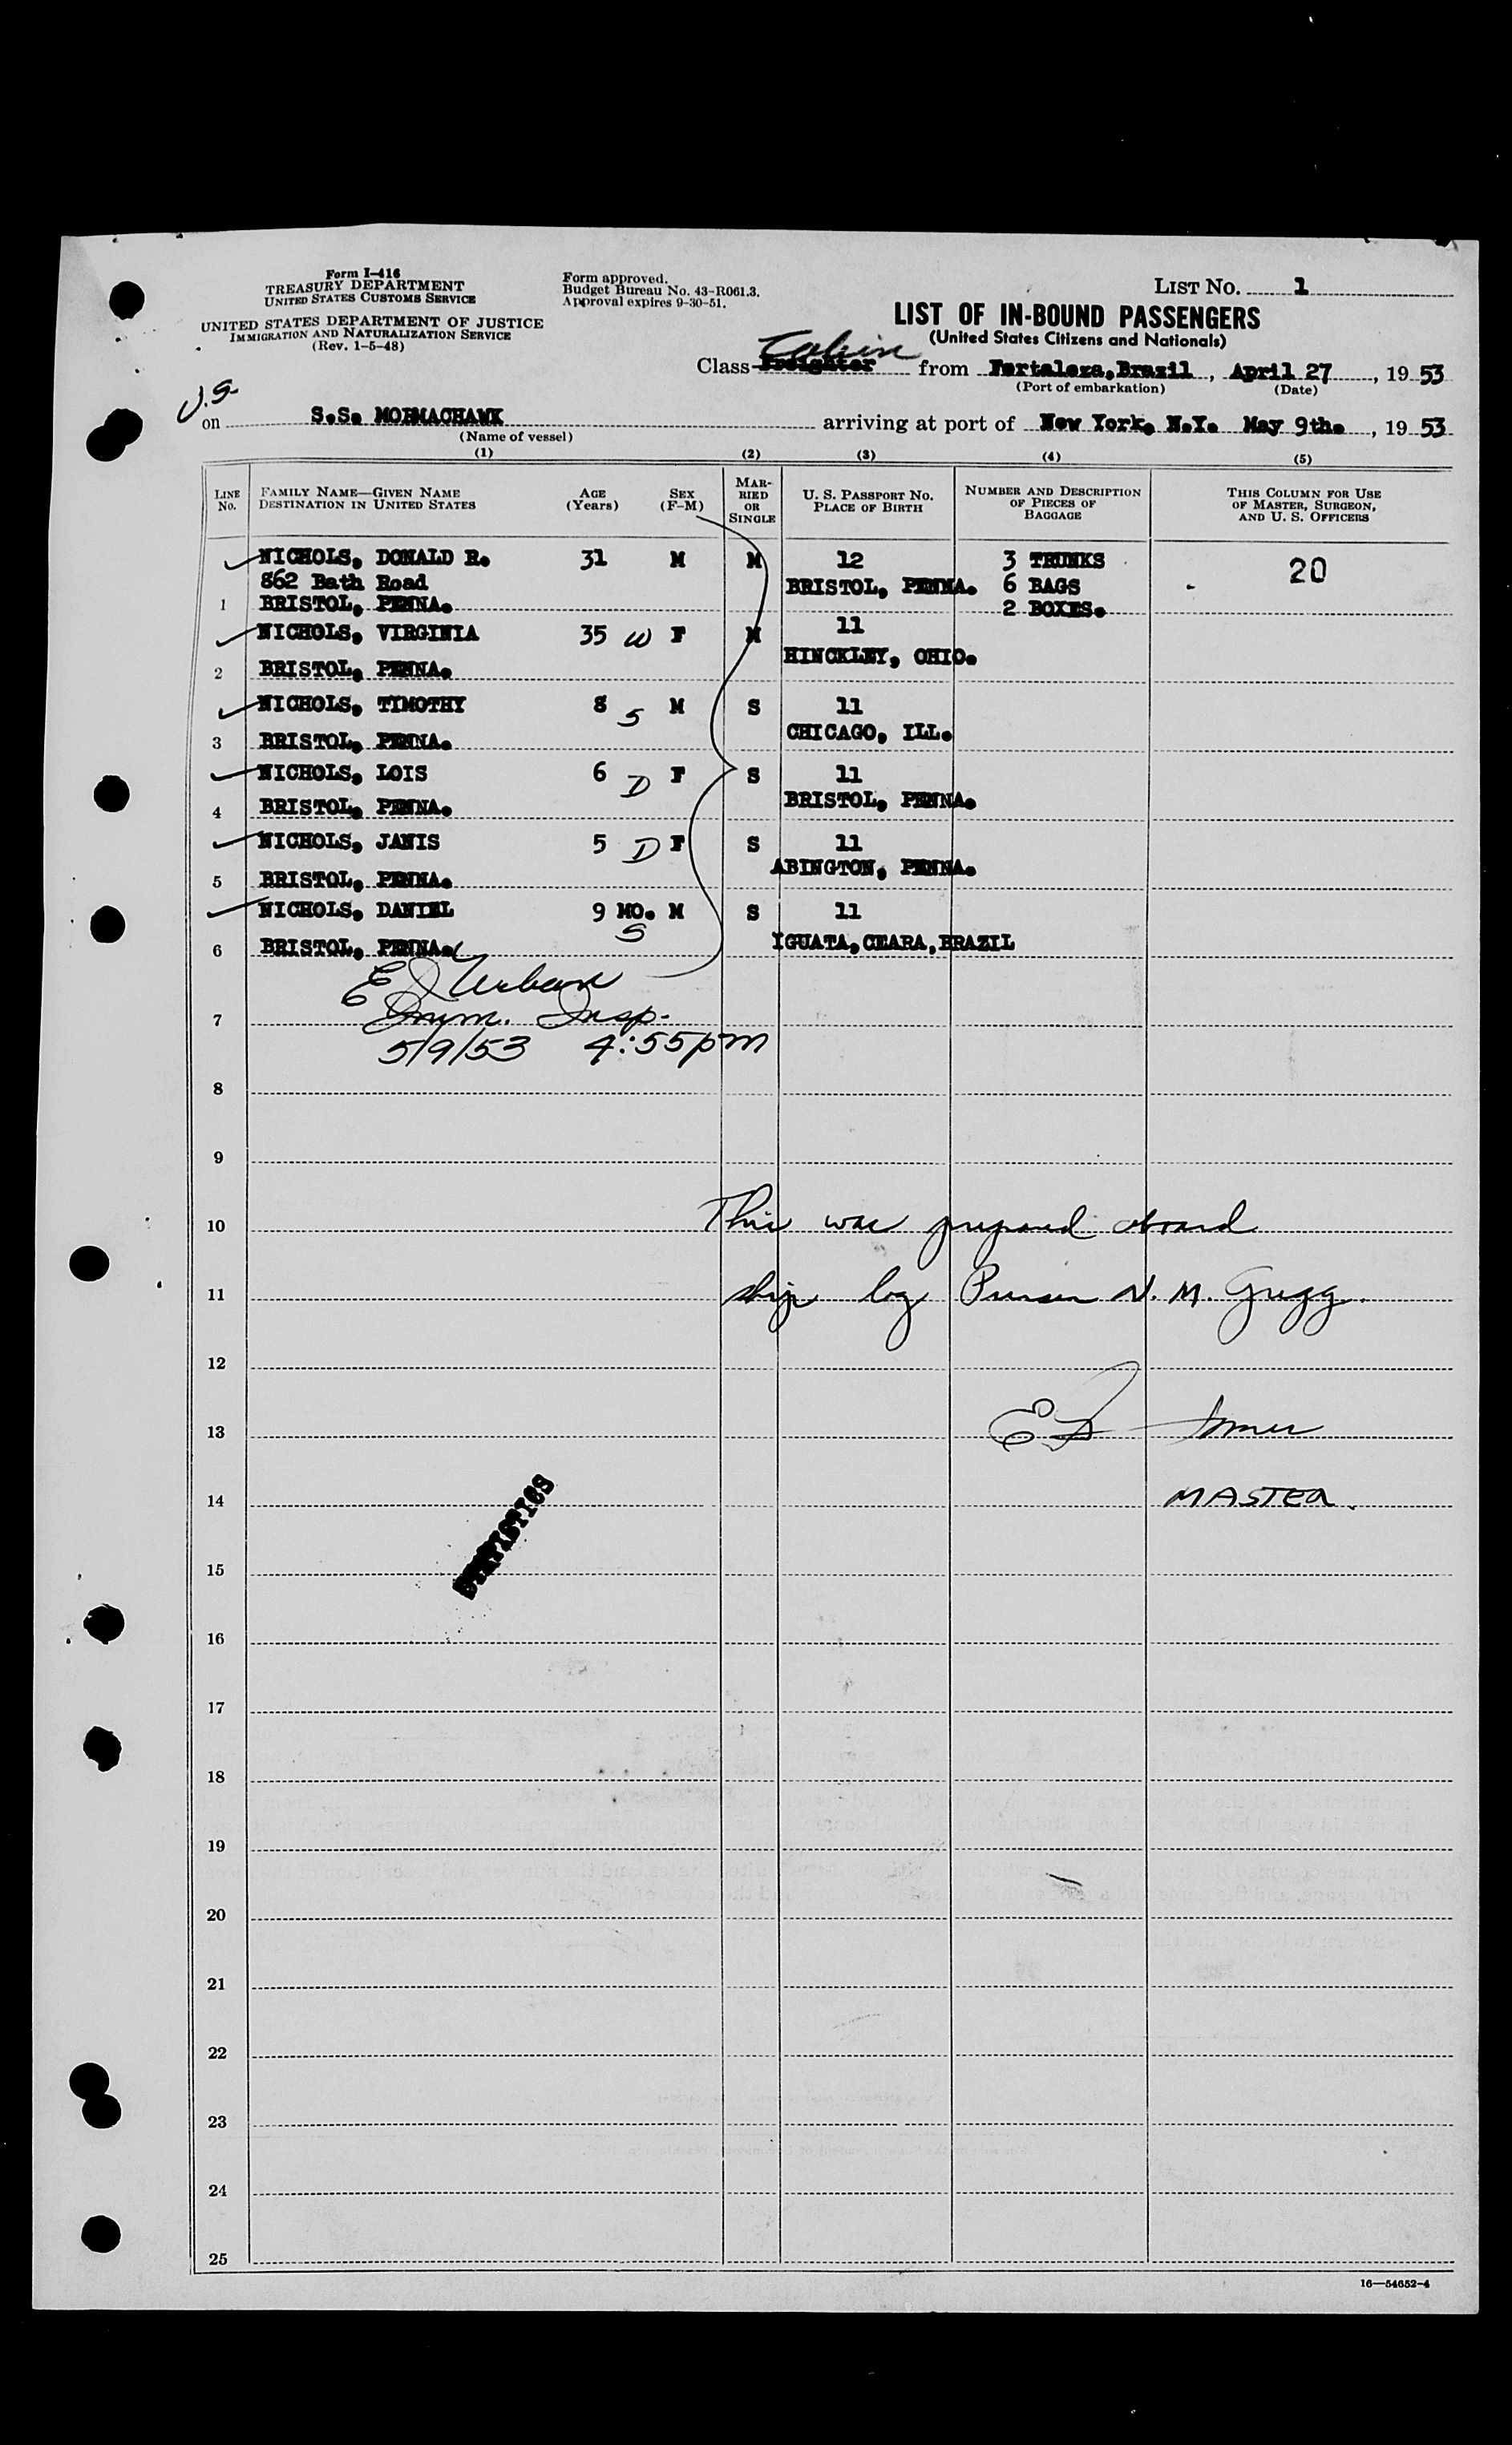 Form I-416
TREASURY DEPARTMENT
UNITED STATES CUSTOMS SERVICE
UNITED STATES DEPARTMENT OF JUSTICE
IMMIGRATION AND NATURALIZATION SERVICE
(Rev. 1-5-48)
Form approved.
Budget Bureau No. 43-R061.3.
Approval expires 9-30-51.
LIST NO. 1
LIST OF IN-BOUND PASSENGERS
(United States Citizens and Nationals)
Cabin
Class Freighter from Fortaleza, Brazil, April 27, 19 53
(Port of embarkation) (Date)
U.S.
on S.S. MORMACHAWK arriving at port of New York, N.Y. May 9th., 19 53
(Name of vessel)
(1) (2) (3) (4) (5)
LINE NO. FAMILY NAME—GIVEN NAME DESTINATION IN UNITED STATES AGE (Years) SEX (F-M) MARRIED OR SINGLE U. S. PASSPORT NO. PLACE OF BIRTH NUMBER AND DESCRIPTION OF PIECES OF BAGGAGE THIS COLUMN FOR USE OF MASTER, SURGEON, AND U. S. OFFICERS
NICHOLS, DONALD R. 31 M M 12 3 TRUNKS 20
862 Bath Road BRISTOL, PENNA. 6 BAGS
1 BRISTOL, PENNA. 2 BOXES.
NICHOLS, VIRGINIA 35 W F M 11
HINCKLEY, OHIO.
2 BRISTOL, PENNA.
NICHOLS, TIMOTHY 8 S M S 11
CHICAGO, ILL.
3 BRISTOL, PENNA.
NICHOLS, LOIS 6 D F S 11
BRISTOL, PENNA.
4 BRISTOL, PENNA.
NICHOLS, JANIS 5 D F S 11
ABINGTON, PENNA.
5 BRISTOL, PENNA.
NICHOLS, DANIEL 9 MO. M S 11
S
6 BRISTOL, PENNA. IGUATA, CEARA, BRAZIL
E J Urban
7 Imm. Insp.
5/9/53 4:55pm
8
9
10 This was prepared aboard
11 ship by Purser N. M. Gregg.
12
13
14 MASTER.
STATISTICS
15
16
17
18
19
20
21
22
23
24
25
16—54652-4